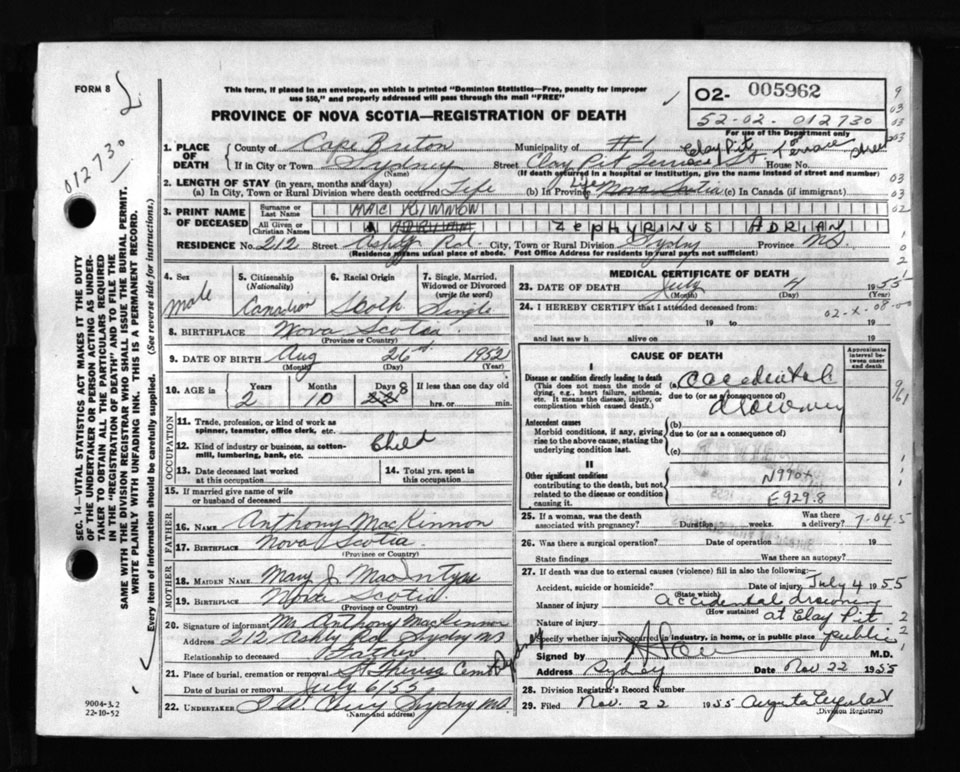 FORM 8
This form, if placed in an envelope, on which is printed "Dominion Statistics—Free, penalty for improper
use $50," and properly addressed will pass through the mail "FREE"
PROVINCE OF NOVA SCOTIA—REGISTRATION OF DEATH
02- 005962
52-02-012730
For use of the Department only
012730
SEC. 14—VITAL STATISTICS ACT MAKES IT THE DUTY
OF THE UNDERTAKER OR PERSON ACTING AS UNDER-
TAKER TO OBTAIN ALL THE PARTICULARS REQUIRED
IN THE "REGISTRATION OF DEATH" AND TO FILE THE
SAME WITH THE DIVISION REGISTRAR WHO SHALL ISSUE THE BURIAL PERMIT.
WRITE PLAINLY WITH UNFADING INK. THIS IS A PERMANENT RECORD.
Every item of information should be carefully supplied. (See reverse side for instructions.)
1. PLACE OF DEATH
County of Cape Breton Municipality of #1 Clay Pit Terrace
If in City or Town Sydney Street Clay Pit Terrace St. House No.
(Name) (If death occurred in a hospital or institution, give the name instead of street and number)
2. LENGTH OF STAY (in years, months and days)
(a) In City, Town or Rural Division where death occurred Life (b) In Province Life Nova Scotia (c) In Canada (if immigrant)
3. PRINT NAME OF DECEASED
Surname or Last Name MAC KINNON
All Given or Christian Names ZEPHYRINUS ADRIAN
RESIDENCE No. 212 Street Ashby Rd. City, Town or Rural Division Sydney Province NS
(Residence means usual place of abode. Post Office Address for residents in rural parts not sufficient)
4. Sex
Male
5. Citizenship (Nationality)
Canadian
6. Racial Origin
Scotch
7. Single, Married, Widowed or Divorced (write the word)
Single
8. BIRTHPLACE Nova Scotia
(Province or Country)
9. DATE OF BIRTH Aug 26 1952
(Month) (Day) (Year)
10. AGE in Years 2 Months 10 Days 8 If less than one day old hrs. or min.
OCCUPATION
11. Trade, profession, or kind of work as spinner, teamster, office clerk, etc.
12. Kind of industry or business, as cotton-mill, lumbering, bank, etc. Child
13. Date deceased last worked at this occupation
14. Total yrs. spent in this occupation
15. If married give name of wife or husband of deceased
FATHER
16. NAME Anthony MacKinnon
17. BIRTHPLACE Nova Scotia
(Province or Country)
MOTHER
18. MAIDEN NAME Mary J. MacIntyre
19. BIRTHPLACE Nova Scotia
(Province or Country)
20. Signature of informant Mr Anthony MacKinnon
Address 212 Ashby Rd Sydney NS
Relationship to deceased Father
21. Place of burial, cremation or removal St Theresa Cem Sydney
Date of burial or removal July 6/55
22. UNDERTAKER Sydney NS
(Name and address)
9004-3.2
22-10-52
MEDICAL CERTIFICATE OF DEATH
23. DATE OF DEATH July 4 1955
(Month) (Day) (Year)
24. I HEREBY CERTIFY that I attended deceased from:
02-X-08-00
19 to 19
and last saw h alive on 19
CAUSE OF DEATH
Approximate interval between onset and death
I
Disease or condition directly leading to death
(This does not mean the mode of dying, e.g., heart failure, asthenia, etc. It means the disease, injury, or complication which caused death.)
(a) accidental drowning
due to (or as a consequence of)
Antecedent causes
Morbid conditions, if any, giving rise to the above cause, stating the underlying condition last.
(b)
due to (or as a consequence of)
(c)
II
Other significant conditions
contributing to the death, but not related to the disease or condition causing it.
N990X
E929.8
25. If a woman, was the death associated with pregnancy? Duration weeks. Was there a delivery? 7-04.5
26. Was there a surgical operation? Date of operation 19
State findings Was there an autopsy?
27. If death was due to external causes (violence) fill in also the following:
Accident, suicide or homicide? Date of injury July 4 1955
(State which)
Manner of injury accidental drowning
(How sustained)
Nature of injury at Clay Pit
Specify whether injury occurred in industry, in home, or in public place public
Signed by M.D.
Address Sydney Date Nov 22 1955
28. Division Registrar's Record Number
29. Filed Nov. 22 1955
(Division Registrar)